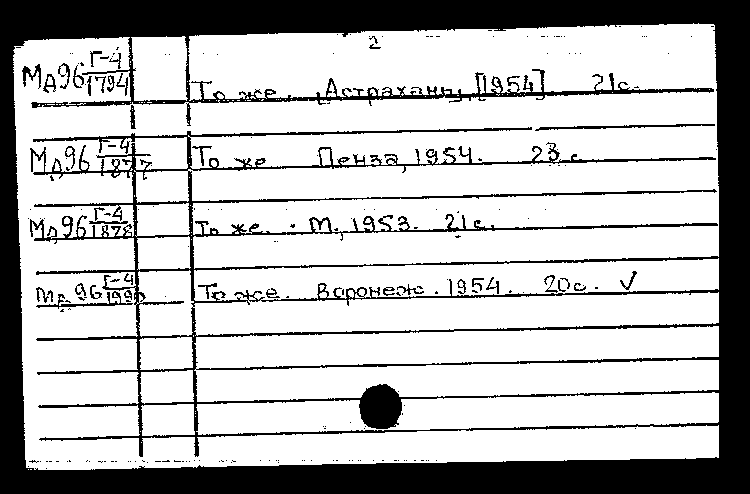 2
Мд96 Г-4/1794 То же. [Астрахань], [1954] 21с.
Мд96 Г-4/1877 То же Пенза, 1954. 23 с
Мд96 Г-4/1878 То же. М., 1953. 21с.
Мд 96 Г-4 То же. Воронеж. 1954. 20с. ✓